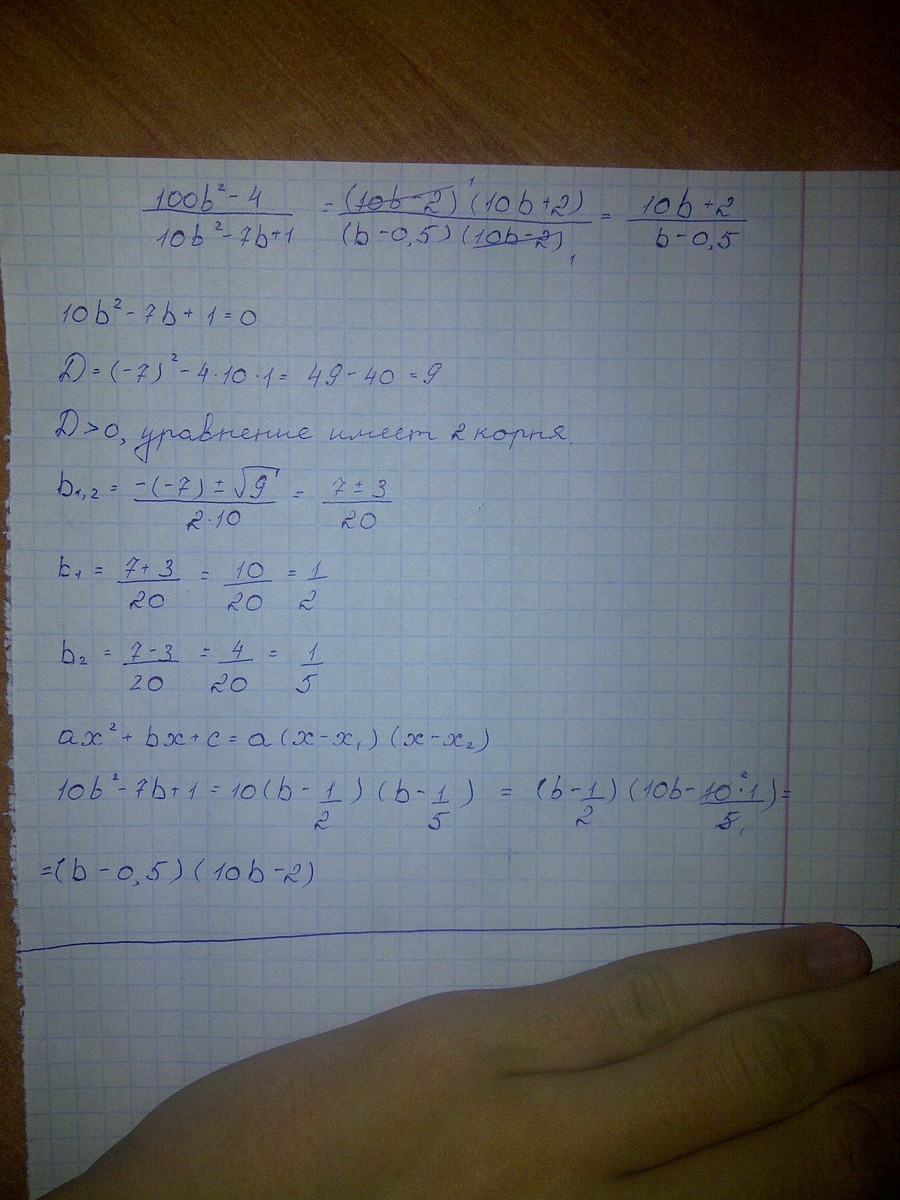 (100b² - 4)/(10b² - 7b + 1) = ((10b - 2)¹ (10b + 2))/((b - 0,5) (10b - 2)₁) = (10b + 2)/(b - 0,5)
10b² - 7b + 1 = 0
D = (-7)² - 4·10·1 = 49 - 40 = 9
D > 0, уравнение имеет 2 корня.
b₁,₂ = (-(-7) ± √9)/(2·10) = (7 ± 3)/20
b₁ = (7 + 3)/20 = 10/20 = 1/2
b₂ = (7 - 3)/20 = 4/20 = 1/5
ax² + bx + c = a (x - x₁) (x - x₂)
10b² - 7b + 1 = 10 (b - 1/2) (b - 1/5) = (b - 1/2) (10b - (10²·1)/5₁) =
= (b - 0,5) (10b - 2)